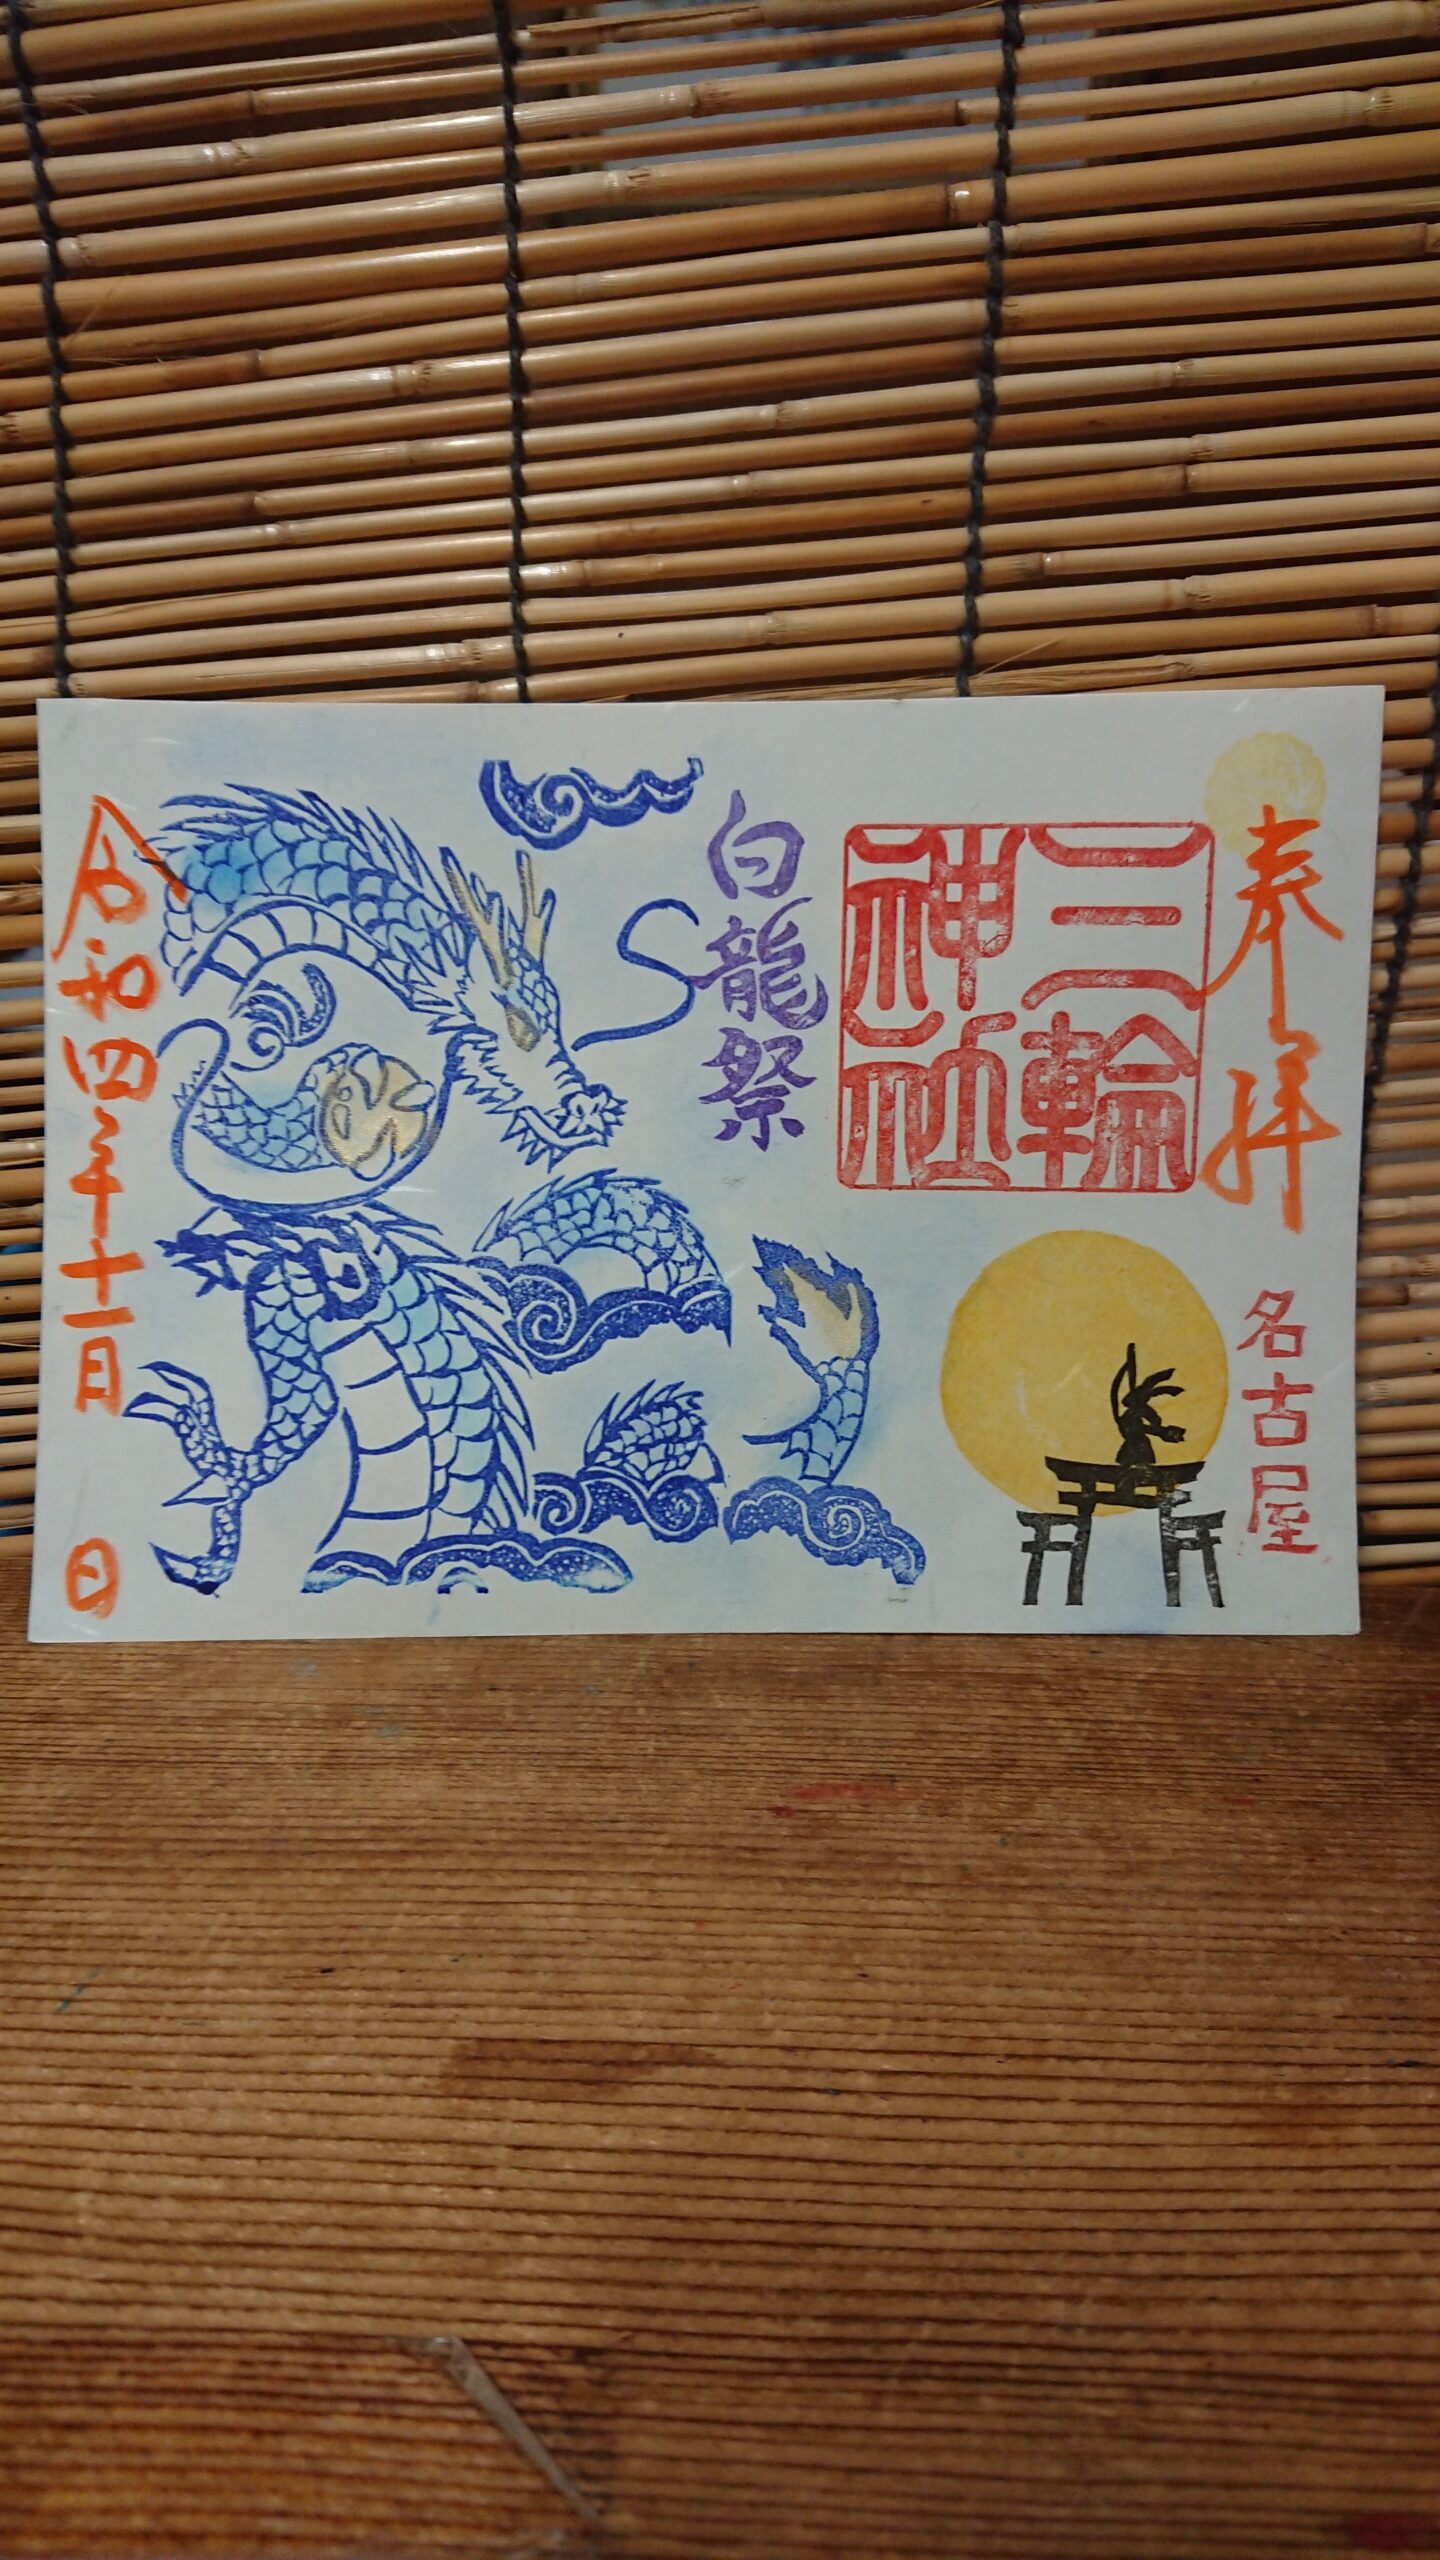 奉拝
名古屋
三輪神社
白龍祭
令和四年十一日 日